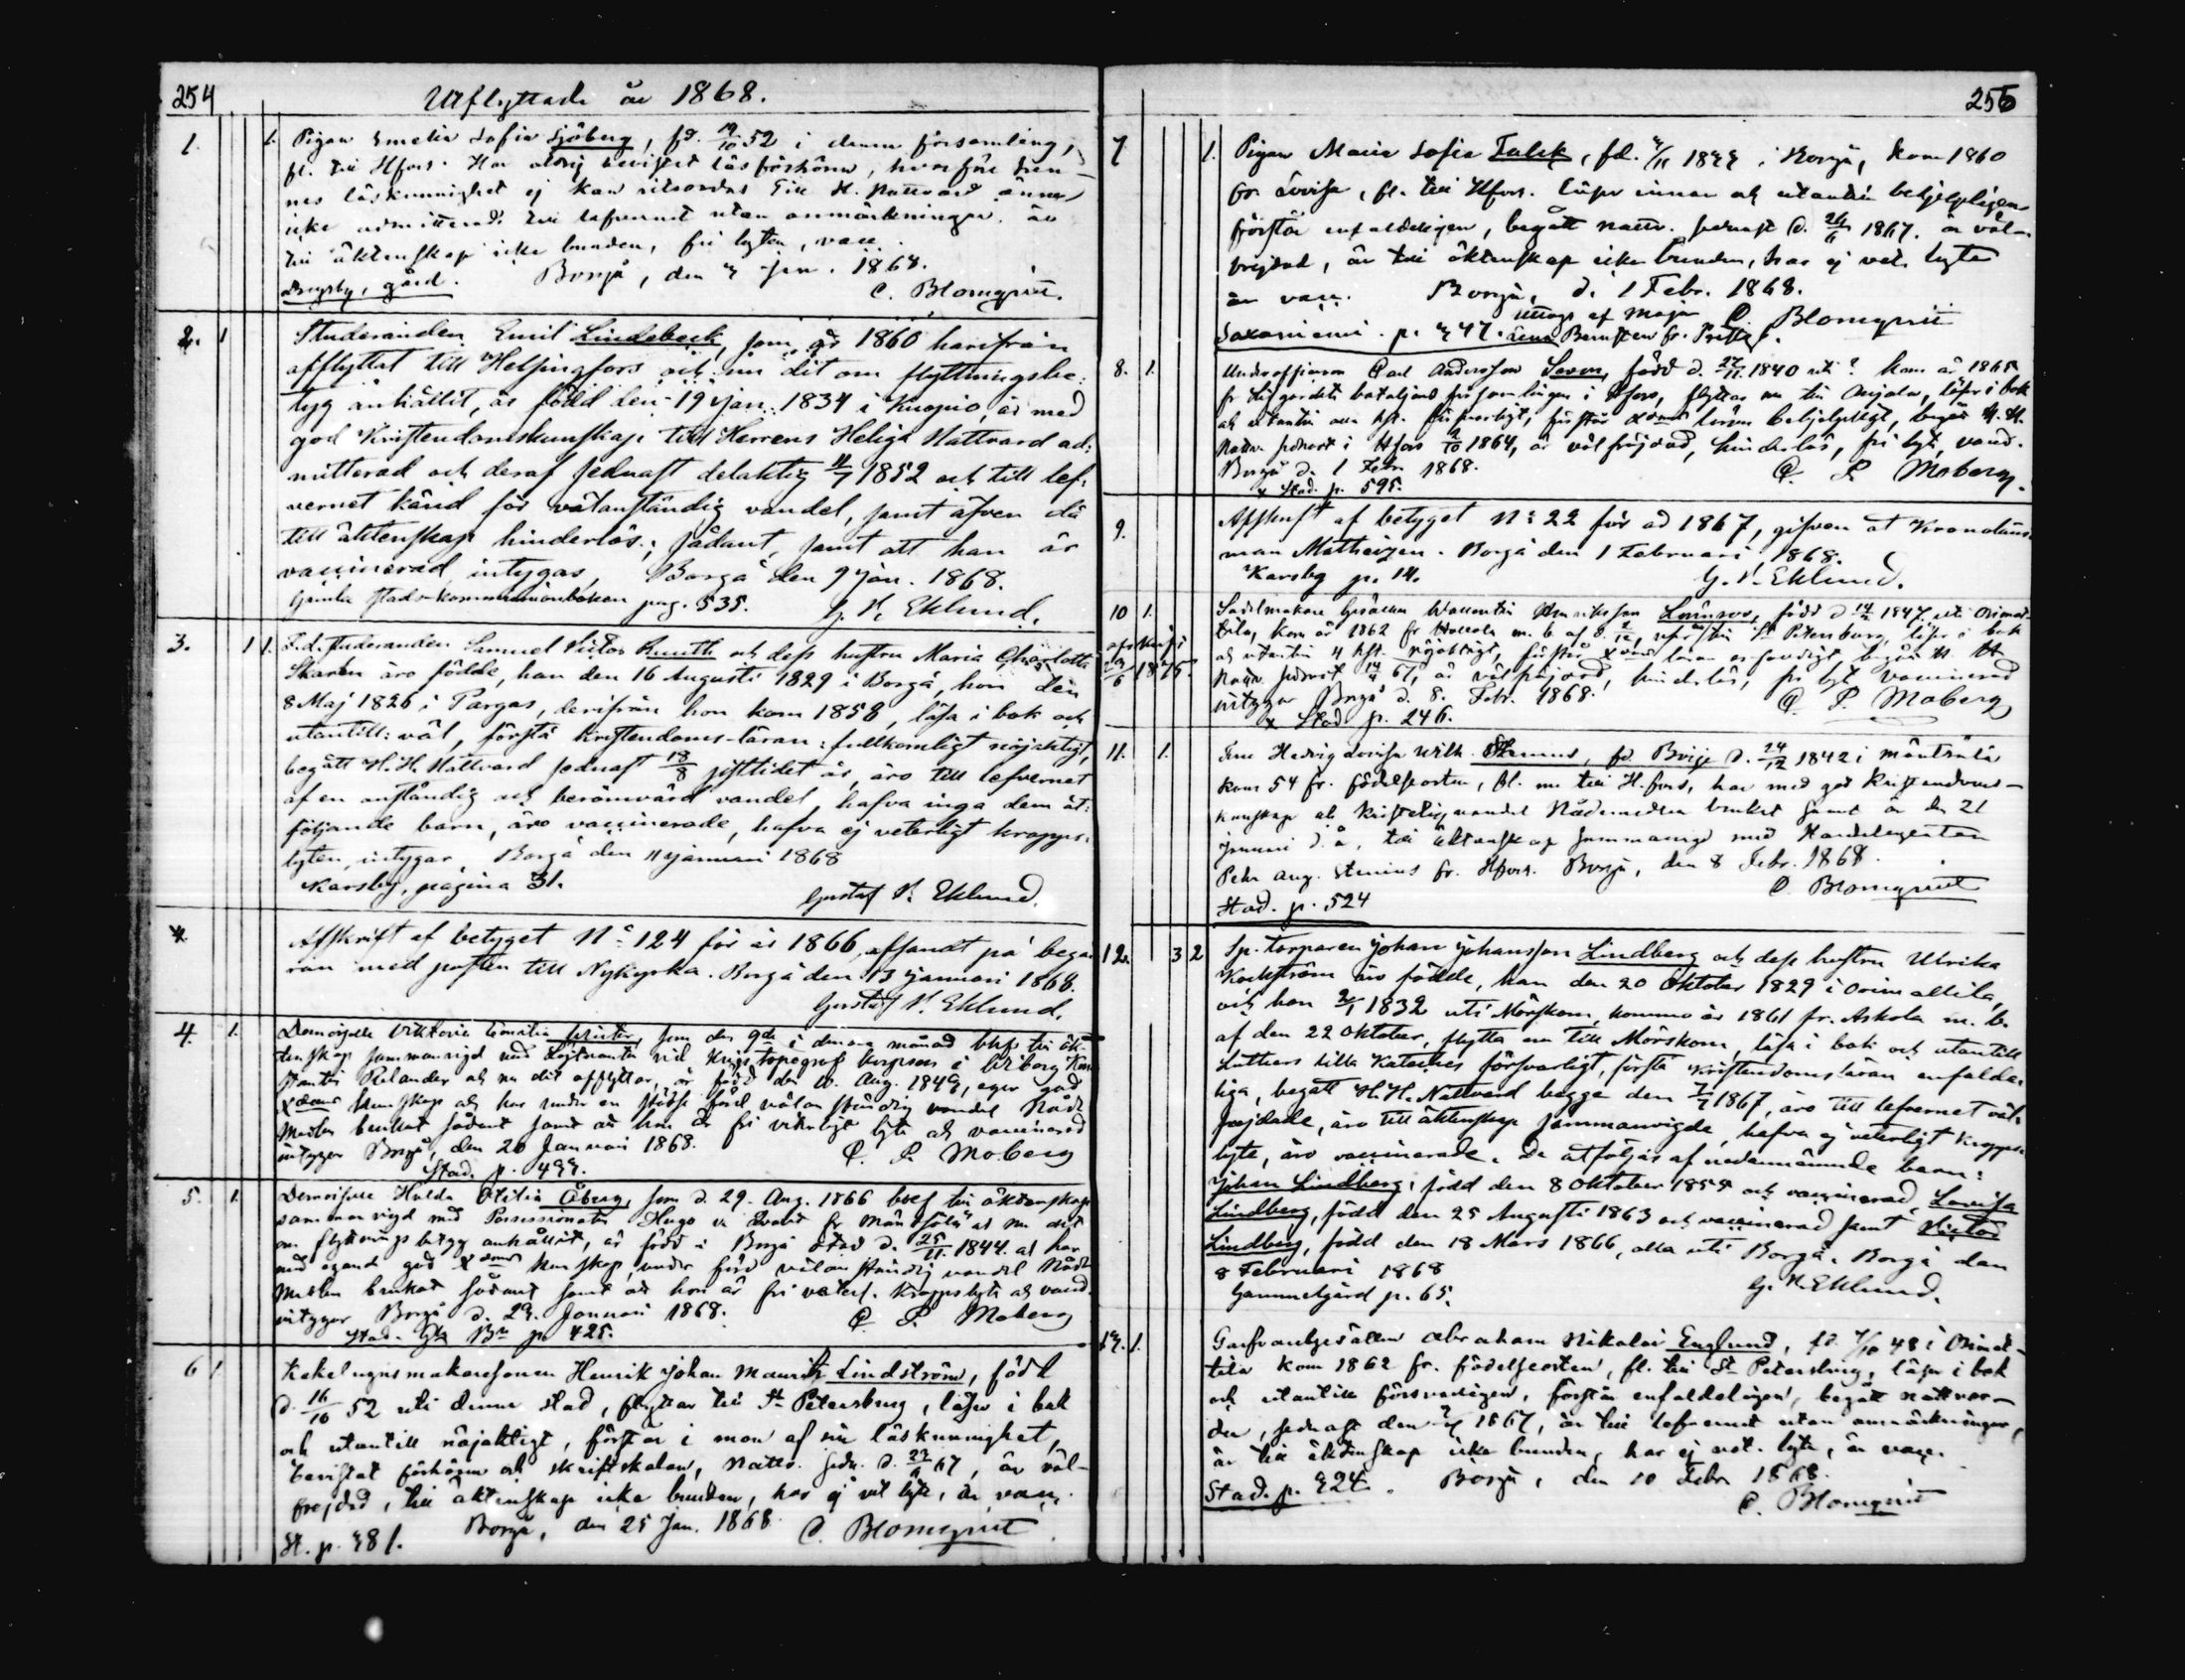 254
Utflyttade år 1868.
1. 1. Pigan Emelia Sofia Sjöberg, fd. 19/10 52 i denna församling,
fl. till Hfors. Har aldrig bevistat läsförhören, hvarföre hen-
nes läskunnighet ej kan vitsordas Till H. Nattvard ännu
icke admitterad. till lefvernet utan anmärkningar. är
till äktenskap icke bunden, fri lyten, vacc.
gård. Borgå, den Jan. 1868.
C. Blomqvist.
2. 1 Studeranden Emil Lindebeck, som år 1860 härifrån
afflyttat till Helsingfors och nu dit om flyttningsbe-
tyg anhållit, är född den 19 Jan. 1834 i Kuopio, är med
god Kristendomskunskap till Herrens Heliga Nattvard ad-
mitterad och deraf sednast delaktig 11/7 1852 och till lef-
vernet känd för välanständig vandel, samt äfven då
till äktenskap hinderlös; sådant, samt att han är
vaccinerad, intygas, Borgå den 9 Jan. 1868.
Gamla stads-kommunionboken pag. 535. G. V. Eklund.
3. 1 1. F.d. studeranden Samuel Victor Ruuth och dess hustru Maria Charlotta
Skarén äro födde, han den 16 Augusti 1829 i Borgå, hon den
8 Maj 1826 i Pargas, derifrån hon kom 1858, läsa i bok och
utantill: väl, förstå kristendoms-läran: fullkomligt nöjaktigt,
begått H. H. Nattvard sednast 18/8 sistlidet år, äro till lefvernet
af en anständig och berömvärd vandel, hafva inga dem åt-
följande barn, äro vaccinerade, hafva ej veterligt kropps-
lyten, intygar Borgå den 11 januari 1868
Karsby, pagina 31.
Gustaf V. Eklund.
4. Afskrift af betyget No 124 för år 1866, afsandt på begä-
ran med posten till Nykyrka. Borgå den 13 januari 1868.
Gustaf V. Eklund.
4. 1. Demoiselle Viktoria Amalia Winter, som den 9de i denna månad blef till äk-
tenskap sammanvigd med Löjtnanten vid topograf i Wiborg
Relander och nu dit afflyttar, är född den Aug. 184, eger god
kunskap och har under en städse förd välanständig vandel Nåde
Medlen brukat sådant samt att hon är fri veterligt lyte och vaccinerad
intygar Borgå, den 20 Januari 1868. C. P. Moberg
Stad. p. 499.
5. 1. Demoiselle Hulda Otilia Åberg, som d. 29. Aug. 1866 blef till äktenskap
sammanvigd med Possessionaten Hugo fr Mäntsälä och nu dit
om flyttningsbetyg anhållit, är född i Borgå Stad d. 25/11 1844. och har
med egande god kunskap, under förd välanständig vandel Nåde
Medlen brukat sådant samt att hon är fri veterl. kroppslyte och vaccd.
intygar Borgå d. 29. Januari 1868. C. P. Moberg
Stad. p. 425.
6 1. Kakelugnsmakaresonen Henrik Johan Maurits Lindström, född
d. 16/10 52 uti denna stad, flyttar till St Petersburg, läser i bok
och utantill nöjaktigt, förstår i mon af sin läskunnighet,
bevistat förhören och skriftskolan, nattv. sedn. d. 67, är väl-
frejdad, till äktenskap icke bunden, har ej vet lyte, är vacc.
Borgå, den 25 Jan. 1868 C. Blomqvist
St. p. 481.
255
7 1. Pigan Maria Sofia Falck, fd. i Borgå, kom 1860
fr Lovisa, fl. till Hfors. läser innan och utantill behjelpligen
förstår enfaldeligen, begått nattv. sednast d. 1867. är väl-
frejdad, är till äktenskap icke bunden, har ej vet. lyte
är vacc. Borgå, d. 1 Febr. 1868.
C. Blomqvist
8. 1. Underofficeren Carl Andersson Seven, född d. 1840 uti? kom år 1865
fr Lifgardets bataljons församlingen i Hfors, flyttar nu till Anjala, läser i bok
och utantill försvarligt, förstår läran behjelpligt, begått H. H.
Nattv. sednast i Hfors 1864, är välfrejdad, hinderlös, fri lyte, vaccd.
Borgå d. 1 Febr. 1868. C. P. Moberg.
x Stad. p. 595.
9. Afskrift af betyget No 22 för år 1867, gifven åt Kronoläns-
man Matheizen. Borgå den 1 Februari 1868.
Karsby p. 14. G. V. Eklund.
10 1. Sadelmakare Gesällen Wallentin Henriksson Lönnros, född d 1847 uti Orimat-
tila, kom år 1862 fr Hollola m. b. af d. till St Petersburg, läser i bok
och utantill nöjaktigt, förstår läran försvarligt, begått H. H.
Nattv. sednast 67, är välfrejdad, hinderlös, fri lyte vaccinerad
intygar Borgå d. 8. Febr. 1868. C. P. Moberg
x Stad. p. 246.
11. 1. Fru Hedvig Lovisa Wilh. Stenius, fd. d. 24/12 1842 i Mäntsälä
kom 54 fr. födelseorten, fl. nu till H.fors, har med god kristendoms-
kunskap och kristelig vandel Nådemedlen brukat samt är den 21
Januari d. å. till äktenskap sammanvigd med Handelsagenten
Pehr Aug. Stenius fr. Hfors. Borgå, den 8 Febr. 1868.
C. Blomqvist
Stad. p. 524
12. 3 2 Sp. torparen Johan Johansson Lindberg och dess hustru Ulrika
äro födde, han den 20 Oktober 1829 i Orimattila,
och hon 1832 uti Mörskom, komna år 1861 fr. Askola m. b.
af den 22 Oktober, flytta nu till Mörskom, läsa i bok och utantill
Luthers lilla Kateches försvarligt, förstå kristendomsläran enfalde-
liga, begått H. H. Nattvard begge den 1867, äro till lefvernet väl-
frejdade, äro till äktenskap sammanvigde, hafva ej veterligt kropps-
lyte, äro vaccinerade. De åtföljas af nedannämnde barn:
Johan Lindberg, född den 8 Oktober 1858 och vaccinerad, Lovisa
Lindberg, född den 25 Augusti 1863 och vaccinerad samt Victor
Lindberg, född den 18 Mars 1866, alla uti Borgå. Borgå den
8 Februari 1868
Gammelgård p. 65. G. V. Eklund.
13. 1. Garfvaregesällen Abraham Nikolai Englund, fd. 48 i Orimat-
tila kom 1862 fr. födelseorten, fl. till St Petersburg, läser i bok
och utantill försvarligen, förstår enfaldeligen, begått nattvar-
den, sednast den 1867, är till lefvernet utan anmärkningar,
är till äktenskap icke bunden, har ej vet. lyte, är vacc.
Stad. p. 424. Borgå, den 10 Febr 1868.
C. Blomqvist